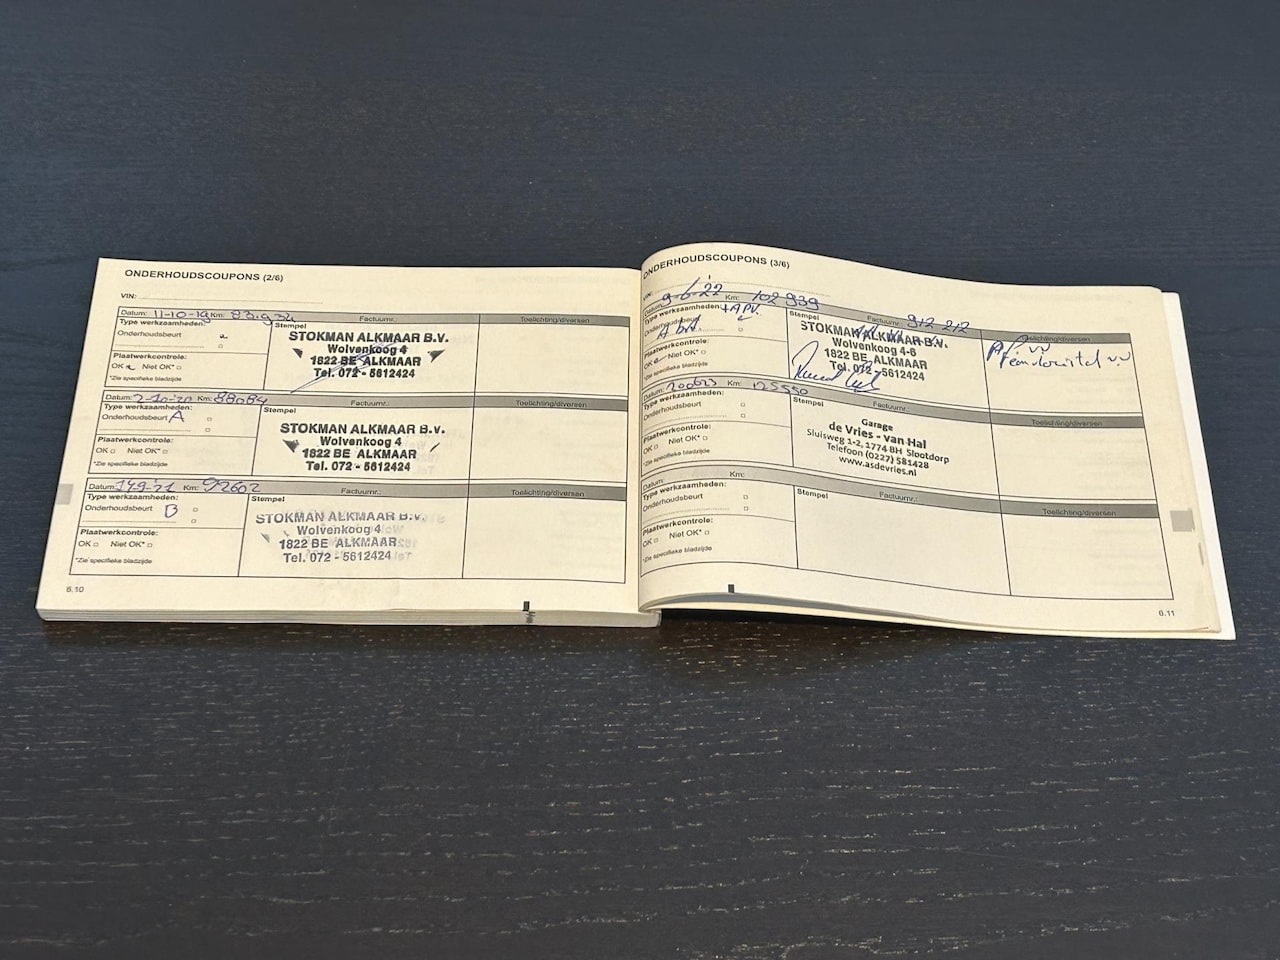 ONDERHOUDSCOUPONS (2/6)
VIN:
Datum: 11-10-19 Km: 83.934 Factuurnr.: Toelichting/diversen
Type werkzaamheden: Stempel
Onderhoudsbeurt
Plaatwerkcontrole:
OK Niet OK*
*Zie specifieke bladzijde
STOKMAN ALKMAAR B.V.
Wolvenkoog 4
1822 BE ALKMAAR
Tel. 072 - 5612424
Datum: 2-10-20 Km: 88084 Factuurnr.: Toelichting/diversen
Type werkzaamheden: Stempel
Onderhoudsbeurt A
Plaatwerkcontrole:
OK Niet OK*
*Zie specifieke bladzijde
STOKMAN ALKMAAR B.V.
Wolvenkoog 4
1822 BE ALKMAAR
Tel. 072 - 5612424
Datum: 14-9-21 Km: 92602 Factuurnr.: Toelichting/diversen
Type werkzaamheden: Stempel
Onderhoudsbeurt B
Plaatwerkcontrole:
OK Niet OK*
*Zie specifieke bladzijde
STOKMAN ALKMAAR B.V.
Wolvenkoog 4
1822 BE ALKMAAR
Tel. 072 - 5612424
6.10
ONDERHOUDSCOUPONS (3/6)
VIN:
Datum: 9-6-'22 Km: 102 939 Factuurnr.: Toelichting/diversen
Type werkzaamheden: Stempel
Onderhoudsbeurt
Plaatwerkcontrole:
OK Niet OK*
*Zie specifieke bladzijde
STOKMAN ALKMAAR B.V.
Wolvenkoog 4-6
1822 BE ALKMAAR
Tel. 072 - 5612424
Remvloeistof vv
Datum: 200623 Km: 125550 Factuurnr.: Toelichting/diversen
Type werkzaamheden: Stempel
Onderhoudsbeurt
Plaatwerkcontrole:
OK Niet OK*
*Zie specifieke bladzijde
Garage
de Vries - van Hal
Sluisweg 1-2, 1774 BH Slootdorp
Telefoon (0227) 581428
www.asdevries.nl
Datum: Km: Factuurnr.: Toelichting/diversen
Type werkzaamheden: Stempel
Onderhoudsbeurt
Plaatwerkcontrole:
OK Niet OK*
*Zie specifieke bladzijde
6.11